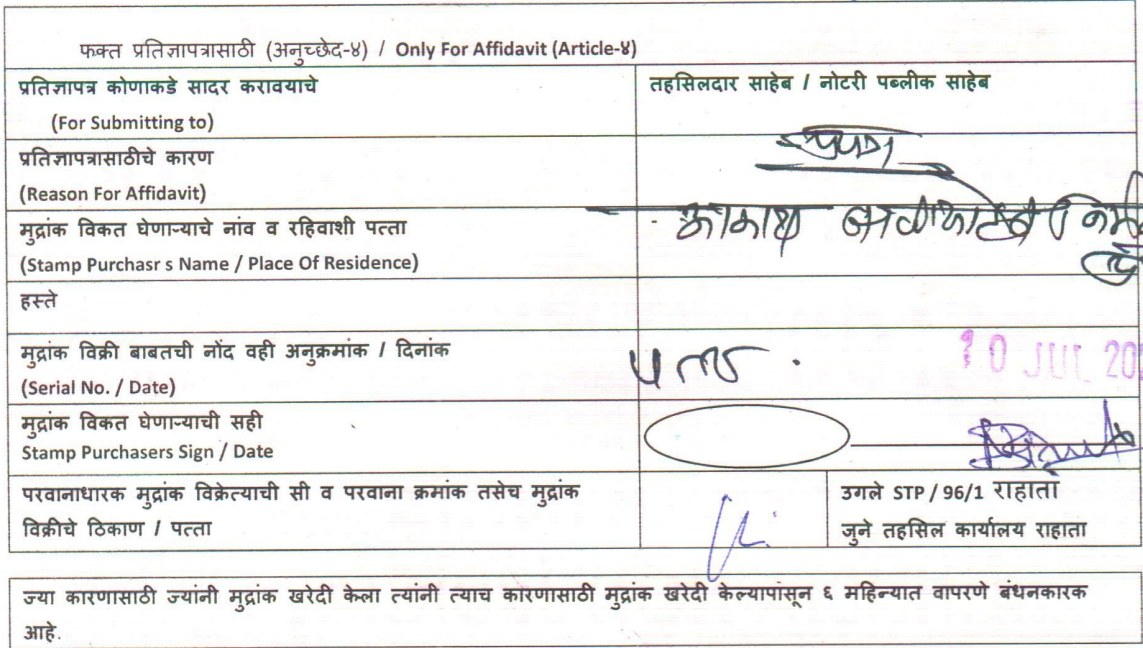 फक्त प्रतिज्ञापत्रासाठी (अनुच्छेद-४) / Only For Affidavit (Article-४)
प्रतिज्ञापत्र कोणाकडे सादर करावयाचे
(For Submitting to)
तहसिलदार साहेब / नोटरी पब्लीक साहेब
प्रतिज्ञापत्रासाठीचे कारण
(Reason For Affidavit)
मुद्रांक विकत घेणाऱ्याचे नांव व रहिवाशी पत्ता
(Stamp Purchasr s Name / Place Of Residence)
आकाश बाळासाहेब
हस्ते
मुद्रांक विक्री बाबतची नोंद वही अनुक्रमांक / दिनांक
(Serial No. / Date)
10 JUL 20
मुद्रांक विकत घेणाऱ्याची सही
Stamp Purchasers Sign / Date
परवानाधारक मुद्रांक विक्रेत्याची सी व परवाना क्रमांक तसेच मुद्रांक
विक्रीचे ठिकाण / पत्ता
उगले STP / 96/1 राहाता
जुने तहसिल कार्यालय राहाता
ज्या कारणासाठी ज्यांनी मुद्रांक खरेदी केला त्यांनी त्याच कारणासाठी मुद्रांक खरेदी केल्यापासून ६ महिन्यात वापरणे बंधनकारक
आहे.